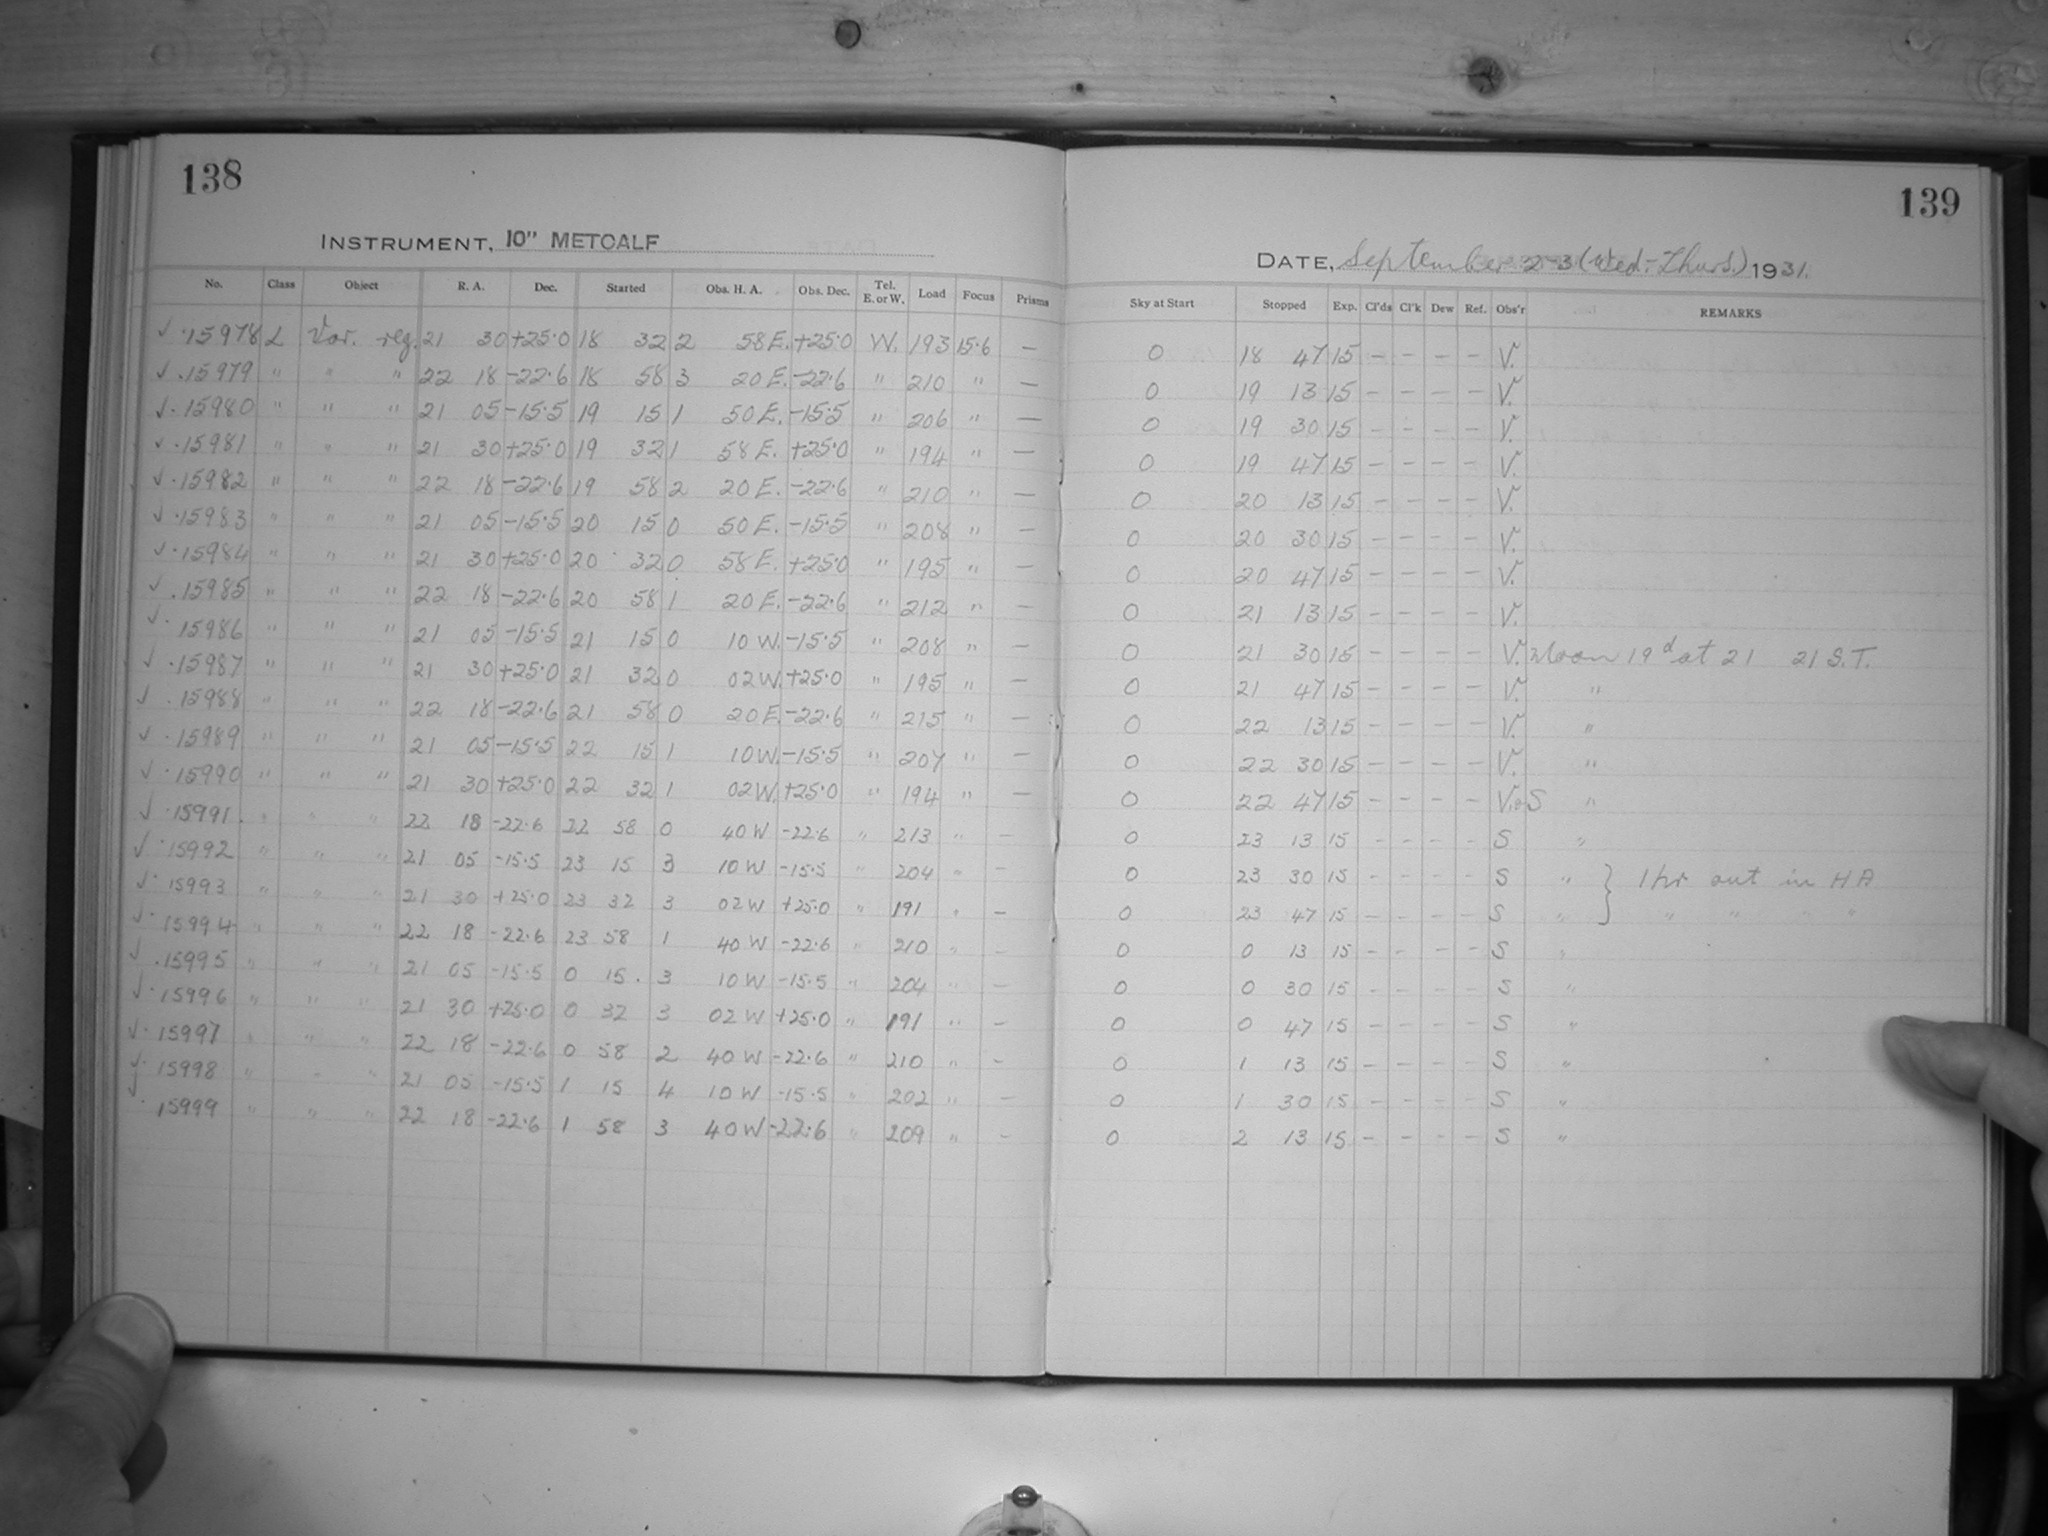 138
INSTRUMENT, 10" METCALF
No. Class Object R. A. Dec. Started Obs. H. A. Obs. Dec. Tel. E. or W. Load Focus Prisms
✓ ·15978 L Var. reg. 21 30 +25·0 18 32 2 58 E. +25·0 W. 193 15·6 —
✓ ·15979 " " " 22 18 -22·6 18 58 3 20 E. -22·6 " 210 " —
✓ ·15980 " " " 21 05 -15·5 19 15 1 50 E. -15·5 " 206 " —
✓ ·15981 " " " 21 30 +25·0 19 32 1 58 E. +25·0 " 194 " —
✓ ·15982 " " " 22 18 -22·6 19 58 2 20 E. -22·6 " 210 " —
✓ ·15983 " " " 21 05 -15·5 20 15 0 50 E. -15·5 " 208 " —
✓ ·15984 " " " 21 30 +25·0 20 32 0 58 E. +25·0 " 195 " —
✓ ·15985 " " " 22 18 -22·6 20 58 1 20 E. -22·6 " 212 " —
✓ ·15986 " " " 21 05 -15·5 21 15 0 10 W. -15·5 " 208 " —
✓ ·15987 " " " 21 30 +25·0 21 32 0 02 W. +25·0 " 195 " —
✓ ·15988 " " " 22 18 -22·6 21 58 0 20 E. -22·6 " 215 " —
✓ ·15989 " " " 21 05 -15·5 22 15 1 10 W. -15·5 " 207 " —
✓ ·15990 " " " 21 30 +25·0 22 32 1 02 W. +25·0 " 194 " —
✓ ·15991 " " " 22 18 -22·6 22 58 0 40 W -22·6 " 213 " —
✓ ·15992 " " " 21 05 -15·5 23 15 3 10 W -15·5 " 204 " —
✓ ·15993 " " " 21 30 +25·0 23 32 3 02 W +25·0 " 191 " —
✓ ·15994 " " " 22 18 -22·6 23 58 1 40 W -22·6 " 210 " —
✓ ·15995 " " " 21 05 -15·5 0 15 3 10 W -15·5 " 204 " —
✓ ·15996 " " " 21 30 +25·0 0 32 3 02 W +25·0 " 191 " —
✓ ·15997 " " " 22 18 -22·6 0 58 2 40 W -22·6 " 210 " —
✓ ·15998 " " " 21 05 -15·5 1 15 4 10 W -15·5 " 202 " —
✓ ·15999 " " " 22 18 -22·6 1 58 3 40 W -22·6 " 209 " —
139
DATE, September 2-3 (Wed.-Thurs.) 1931.
Sky at Start Stopped Exp. Cl'ds Cl'k Dew Ref. Obs'r REMARKS
0 18 47 15 — — — — V.
0 19 13 15 — — — — V.
0 19 30 15 — — — — V.
0 19 47 15 — — — — V.
0 20 13 15 — — — — V.
0 20 30 15 — — — — V.
0 20 47 15 — — — — V.
0 21 13 15 — — — — V.
0 21 30 15 — — — — V. Moon 19d at 21 21 S.T.
0 21 47 15 — — — — V. "
0 22 13 15 — — — — V. "
0 22 30 15 — — — — V. "
0 22 47 15 — — — — V.+S "
0 23 13 15 — — — — S "
0 23 30 15 — — — — S " } 1 hr out in HA
0 23 47 15 — — — — S " } " " " "
0 0 13 15 — — — — S "
0 0 30 15 — — — — S "
0 0 47 15 — — — — S "
0 1 13 15 — — — — S "
0 1 30 15 — — — — S "
0 2 13 15 — — — — S "